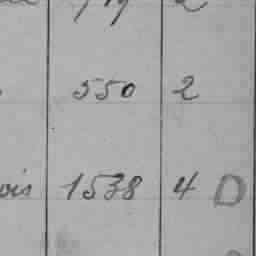 550 2
ois 1538 4 D